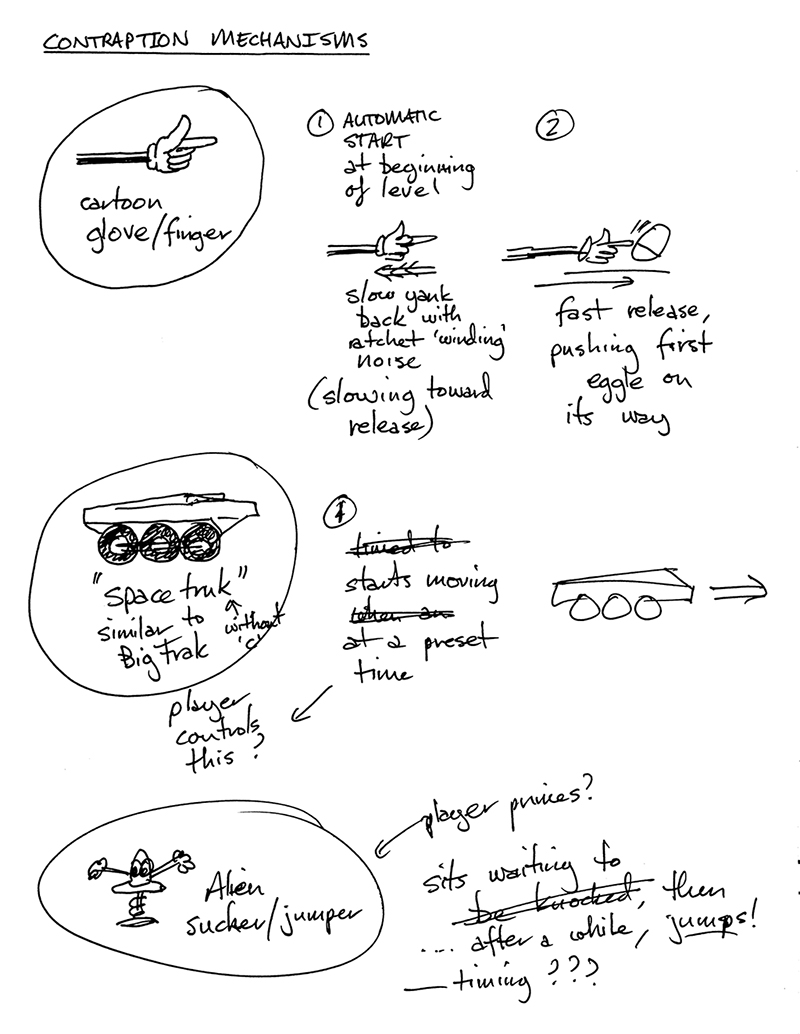 CONTRAPTION MECHANISMS
cartoon
glove/finger
① AUTOMATIC
START
at beginning
of level
slow yank
back with
ratchet 'winding'
noise
(slowing toward
release)
②
fast release,
pushing first
eggle on
its way
"space truk"
similar to
Big Trak
without
'c'
①
timed to
starts moving
when an
at a preset
time
player
controls
this?
Alien
sucker/jumper
player primes?
sits waiting to
be knocked, then
.... after a while, jumps!
— timing ???